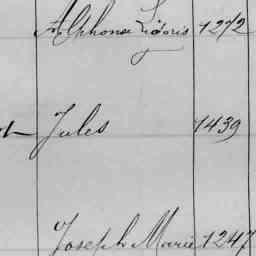 Alphonse Ligoris 1272
Jules 1439
Joseph Marie 1247